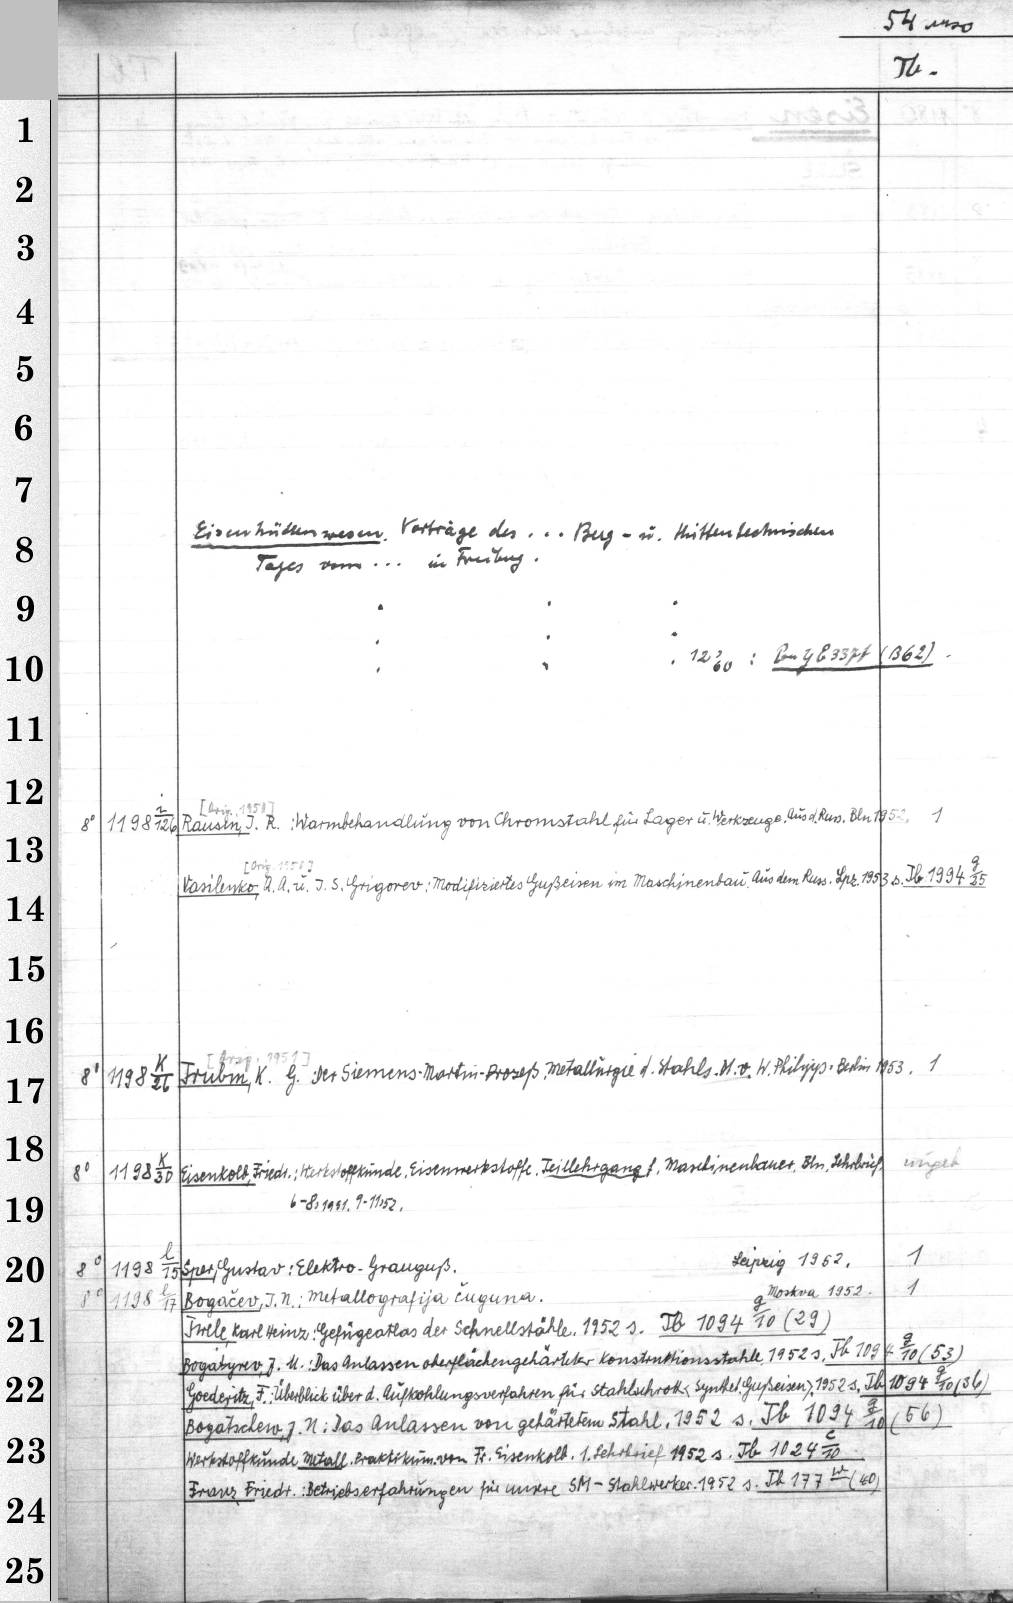 54
Tb.
Eisenhüttenwesen. Vorträge des ... Berg- u. Hüttentechnischen
Tages vom ... in Freiberg.
. . .
. . .
. . . (B62)
[Orig. 1950]
8° 1198 Rausin, I. R.: Warmbehandlung von Chromstahl für Lager u. Werkzeuge. Aus d. Russ. Bln 1952. 1
[Orig. 1950]
Vasilenko, A. A. u. I. S. Grigorev: Modifiziertes Gußeisen im Maschinenbau. Aus dem Russ. Lpz. 1953 s. Tb 1994 g/25
[Orig. 1951]
8° 1198 K/26 Trubin, K. G. Der Siemens-Martin-Prozeß. Metallurgie d. Stahls. W. Philipp. Berlin 1953. 1
8° 1198 K/30 Eisenkolb, Friedr.: Werkstoffkunde. Eisenwerkstoffe. Teillehrgang f. Maschinenbauer. Bln. Lehrbrief
6-8, 1951. 9-11, 52.
8° 1198 l/15 Sper, Gustav: Elektro-Grauguß. Leipzig 1952. 1
8° 1198 l/17 Bogačev, I. N.: Metallografija čuguna. Moskva 1952. 1
Karl Heinz: Gefügeatlas der Schnellstähle. 1952 s. Tb 1094 g/10 (29)
Das Anlassen oberflächengehärteter Konstruktionsstahle, 1952 s. Tb 1094 g/10 (53)
Goederitz, F.: Überblick über d. Aufkohlungsverfahren für Stahlschrott (Synthet. Gußeisen), 1952 s. Tb 1094 g/10 (36)
Bogatschew, J. N: Das Anlassen von gehärtetem Stahl. 1952 s. Tb 1094 g/10 (56)
Werkstoffkunde Metall. Praktikum. von Fr. Eisenkolb. 1. Lehrbrief 1952 s. Tb 1024 c/10
Franz Friedr.: Betriebserfahrungen für unsere SM-Stahlwerker. 1952 s. Tb 177 (40)
1
2
3
4
5
6
7
8
9
10
11
12
13
14
15
16
17
18
19
20
21
22
23
24
25